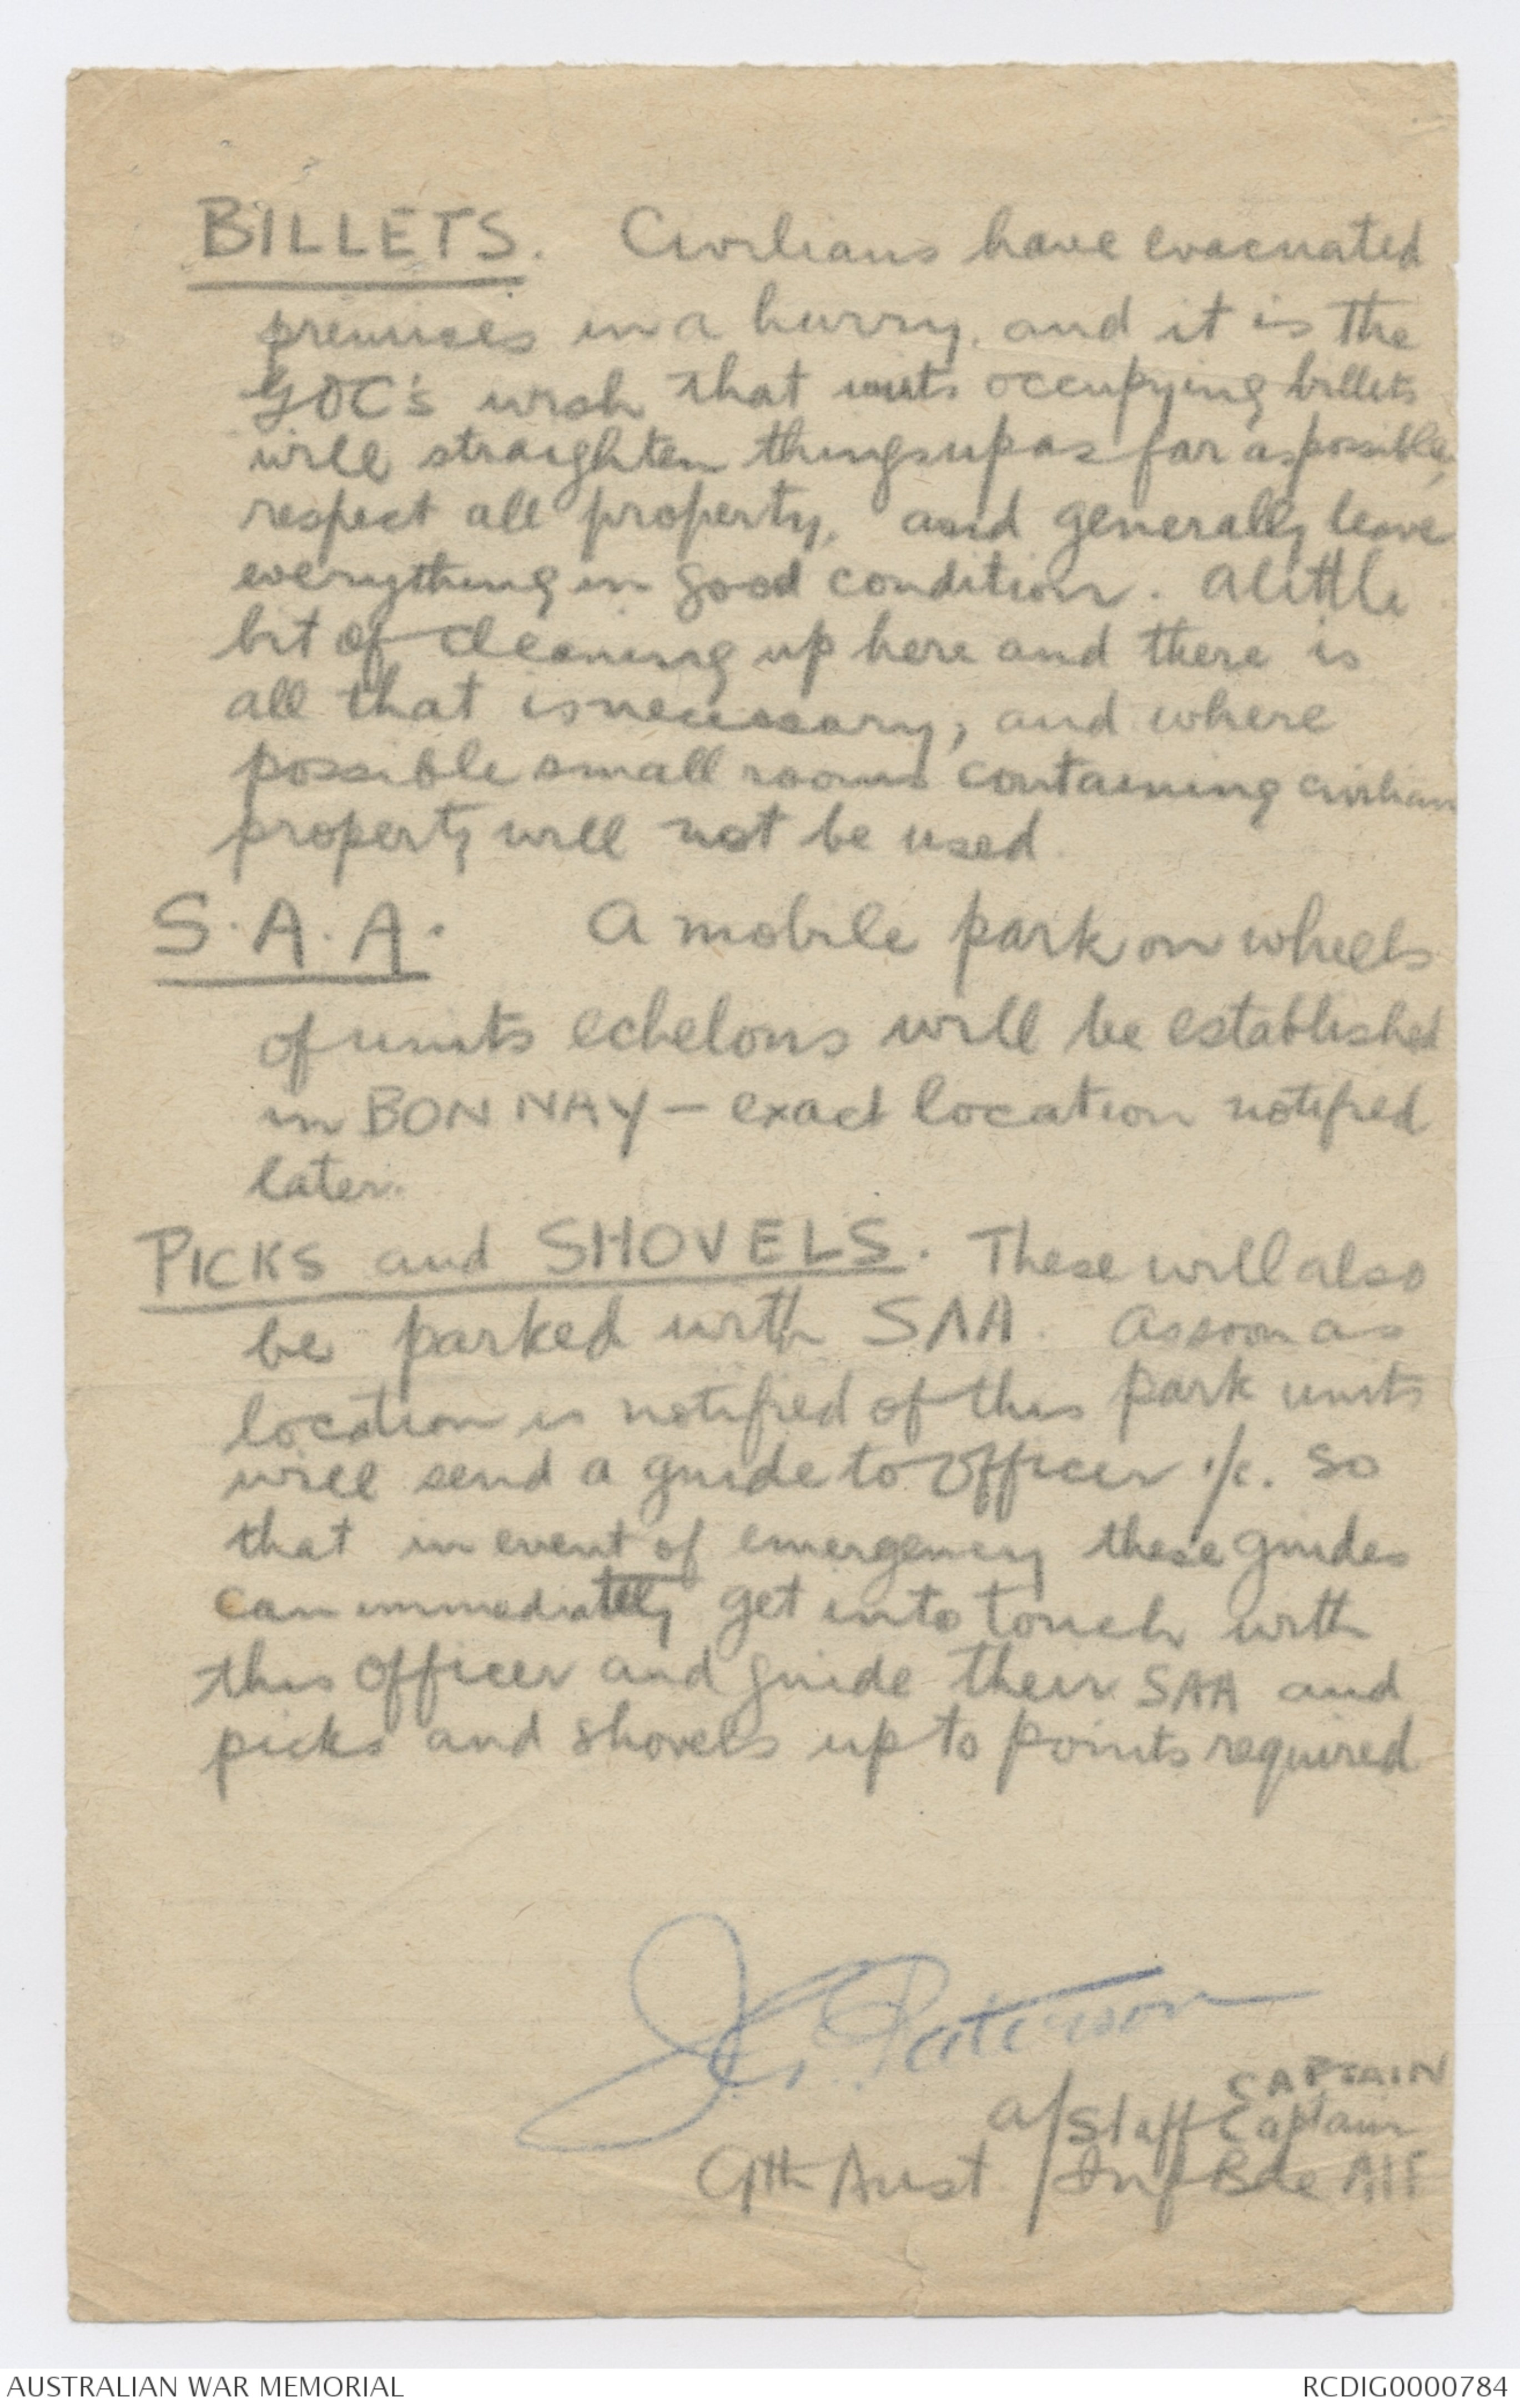 BILLETS. Civilians have evacuated
premises in a hurry, and it is the
GOC's wish that units occupying billets
will straighten things up as far as possible,
respect all property, and generally leave
everything in good condition. A little
bit of cleaning up here and there is
all that is necessary, and where
possible small rooms containing civilian
property will not be used.
S.A.A. A mobile park on wheels
of units echelons will be established
in BONNAY - exact location notified
later.
PICKS and SHOVELS. These will also
be parked with SAA. As soon as
location is notified of this park units
will send a guide to Officer i/c. so
that in event of emergency these guides
can immediately get into touch with
this Officer and guide their SAA and
picks and shovels up to points required
Paterson
CAPTAIN
a/Staff Captain
9th Aust. Inf Bde AIF
AUSTRALIAN WAR MEMORIAL
RCDIG0000784